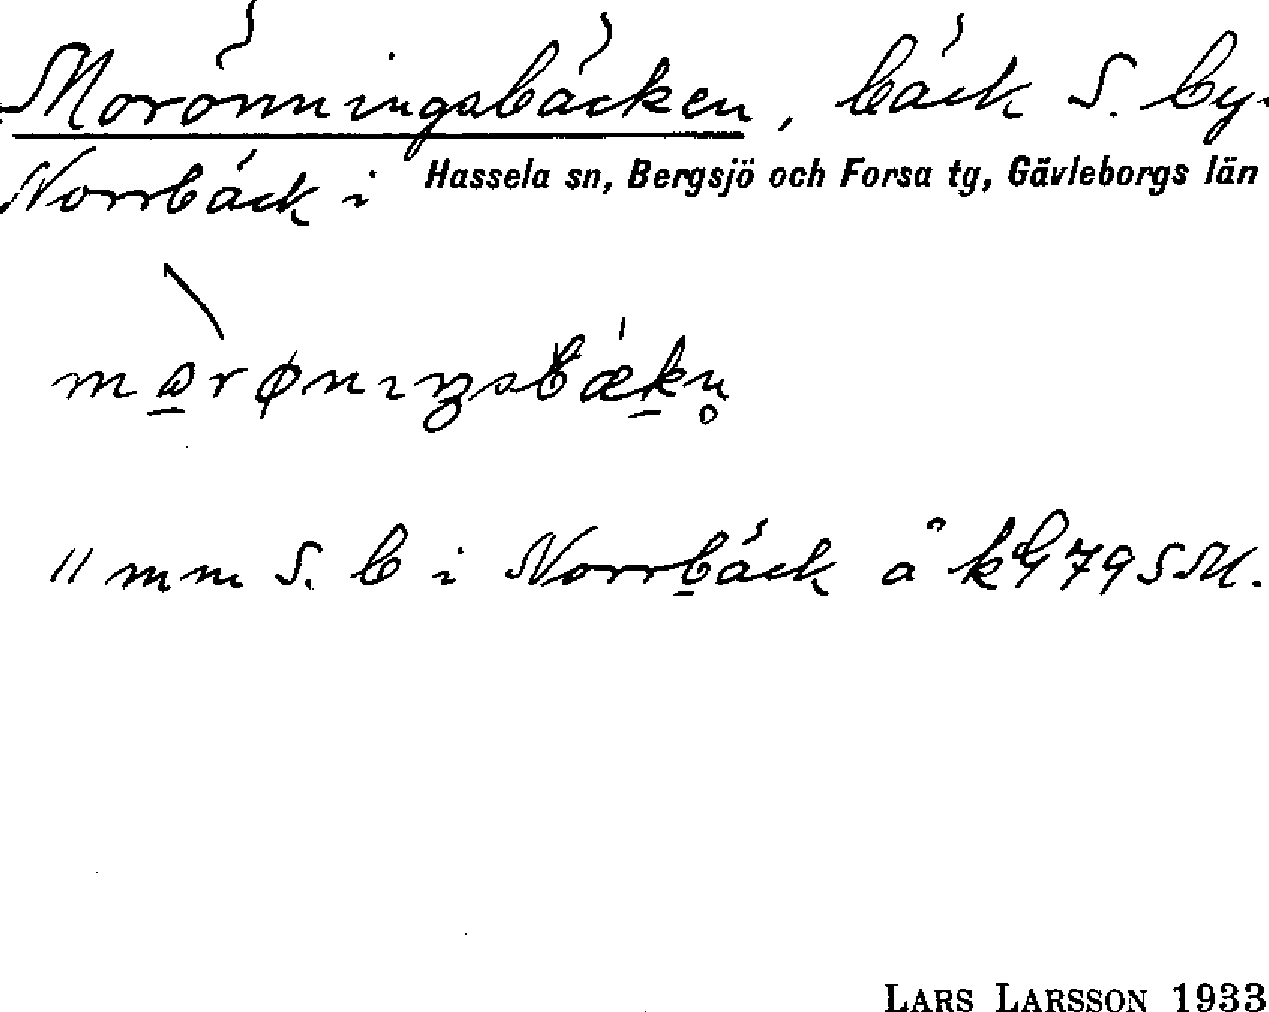 Morönningsbäcken, bäck S. by.
Norrbäck i Hassela sn, Bergsjö och Forsa tg, Gävleborgs län
11 mm S. b i Norrbäck å
LARS LARSSON 1933